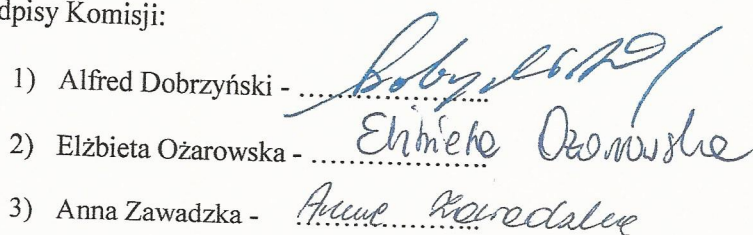 dpisy Komisji:
1) Alfred Dobrzyński - .................... Dobrzyński
2) Elżbieta Ożarowska - .................... Elżbieta Ożarowska
3) Anna Zawadzka - .................... Anna Zawadzka